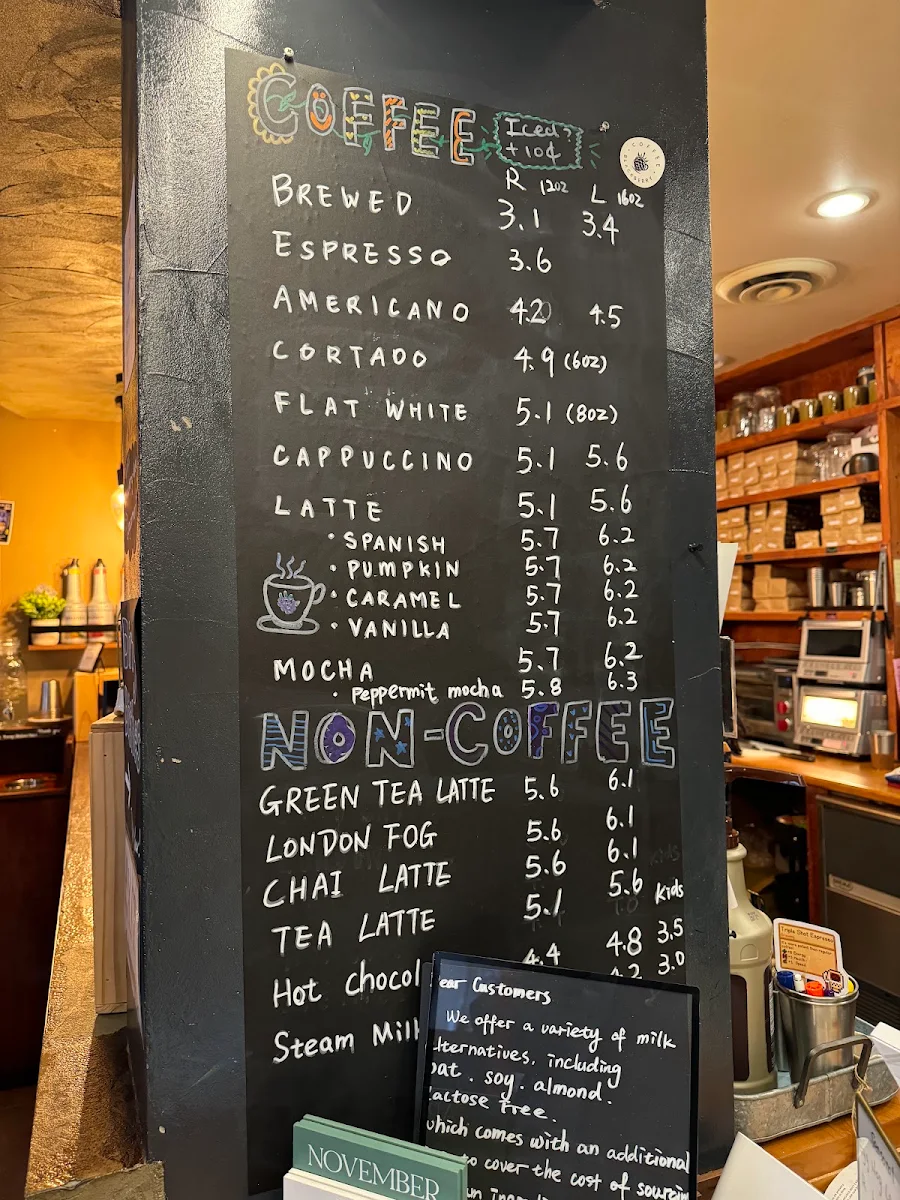 COFFEE
Iced
+10¢
R 12oz L 16oz
BREWED 3.1 3.4
ESPRESSO 3.6
AMERICANO 4.20 4.5
CORTADO 4.9 (6oz)
FLAT WHITE 5.1 (8oz)
CAPPUCCINO 5.1 5.6
LATTE 5.1 5.6
• SPANISH 5.7 6.2
• PUMPKIN 5.7 6.2
• CARAMEL 5.7 6.2
• VANILLA 5.7 6.2
MOCHA 5.7 6.2
• Peppermit mocha 5.8 6.3
NON-COFFEE
GREEN TEA LATTE 5.6 6.1
LONDON FOG 5.6 6.1
CHAI LATTE 5.6 6.1
TEA LATTE 5.1 5.6 Kids
Hot chocol 4.4 4.8 3.5
Steam Milk 4.2 3.0
ear Customers
We offer a variety of milk
lternatives, including
oat. soy. almond.
actose Free.
which comes with an additional
to cover the cost of sourcin
NOVEMBER
COFFEE
Triple Shot Espresso